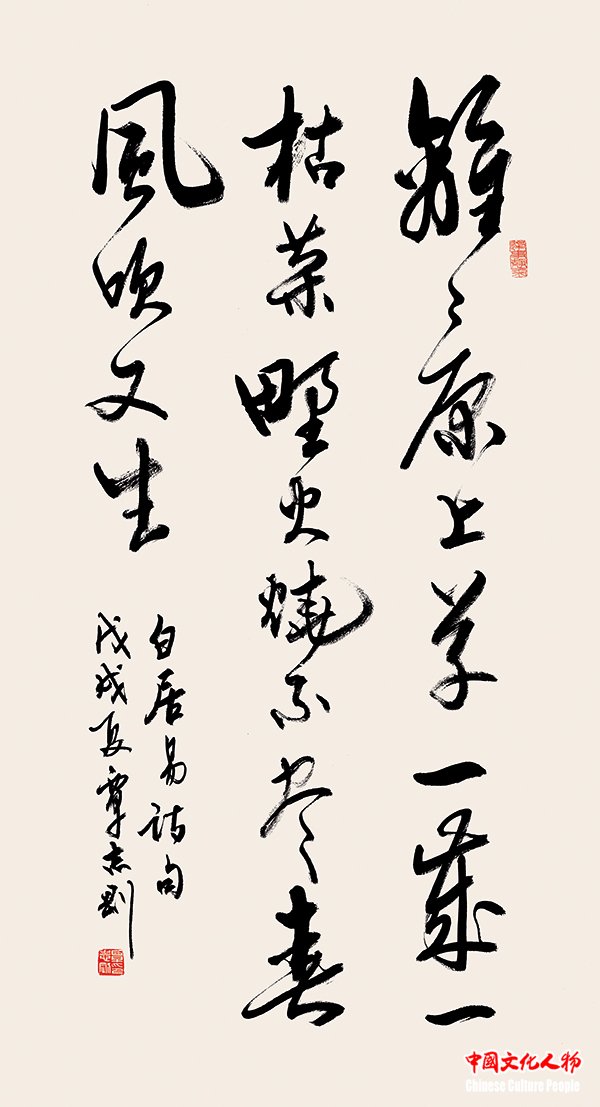 離々原上草一歲一
枯榮野火燒不尽春
風吹又生
白居易詩句
戊戌夏覃志剛
中國文化人物
Chinese Culture People